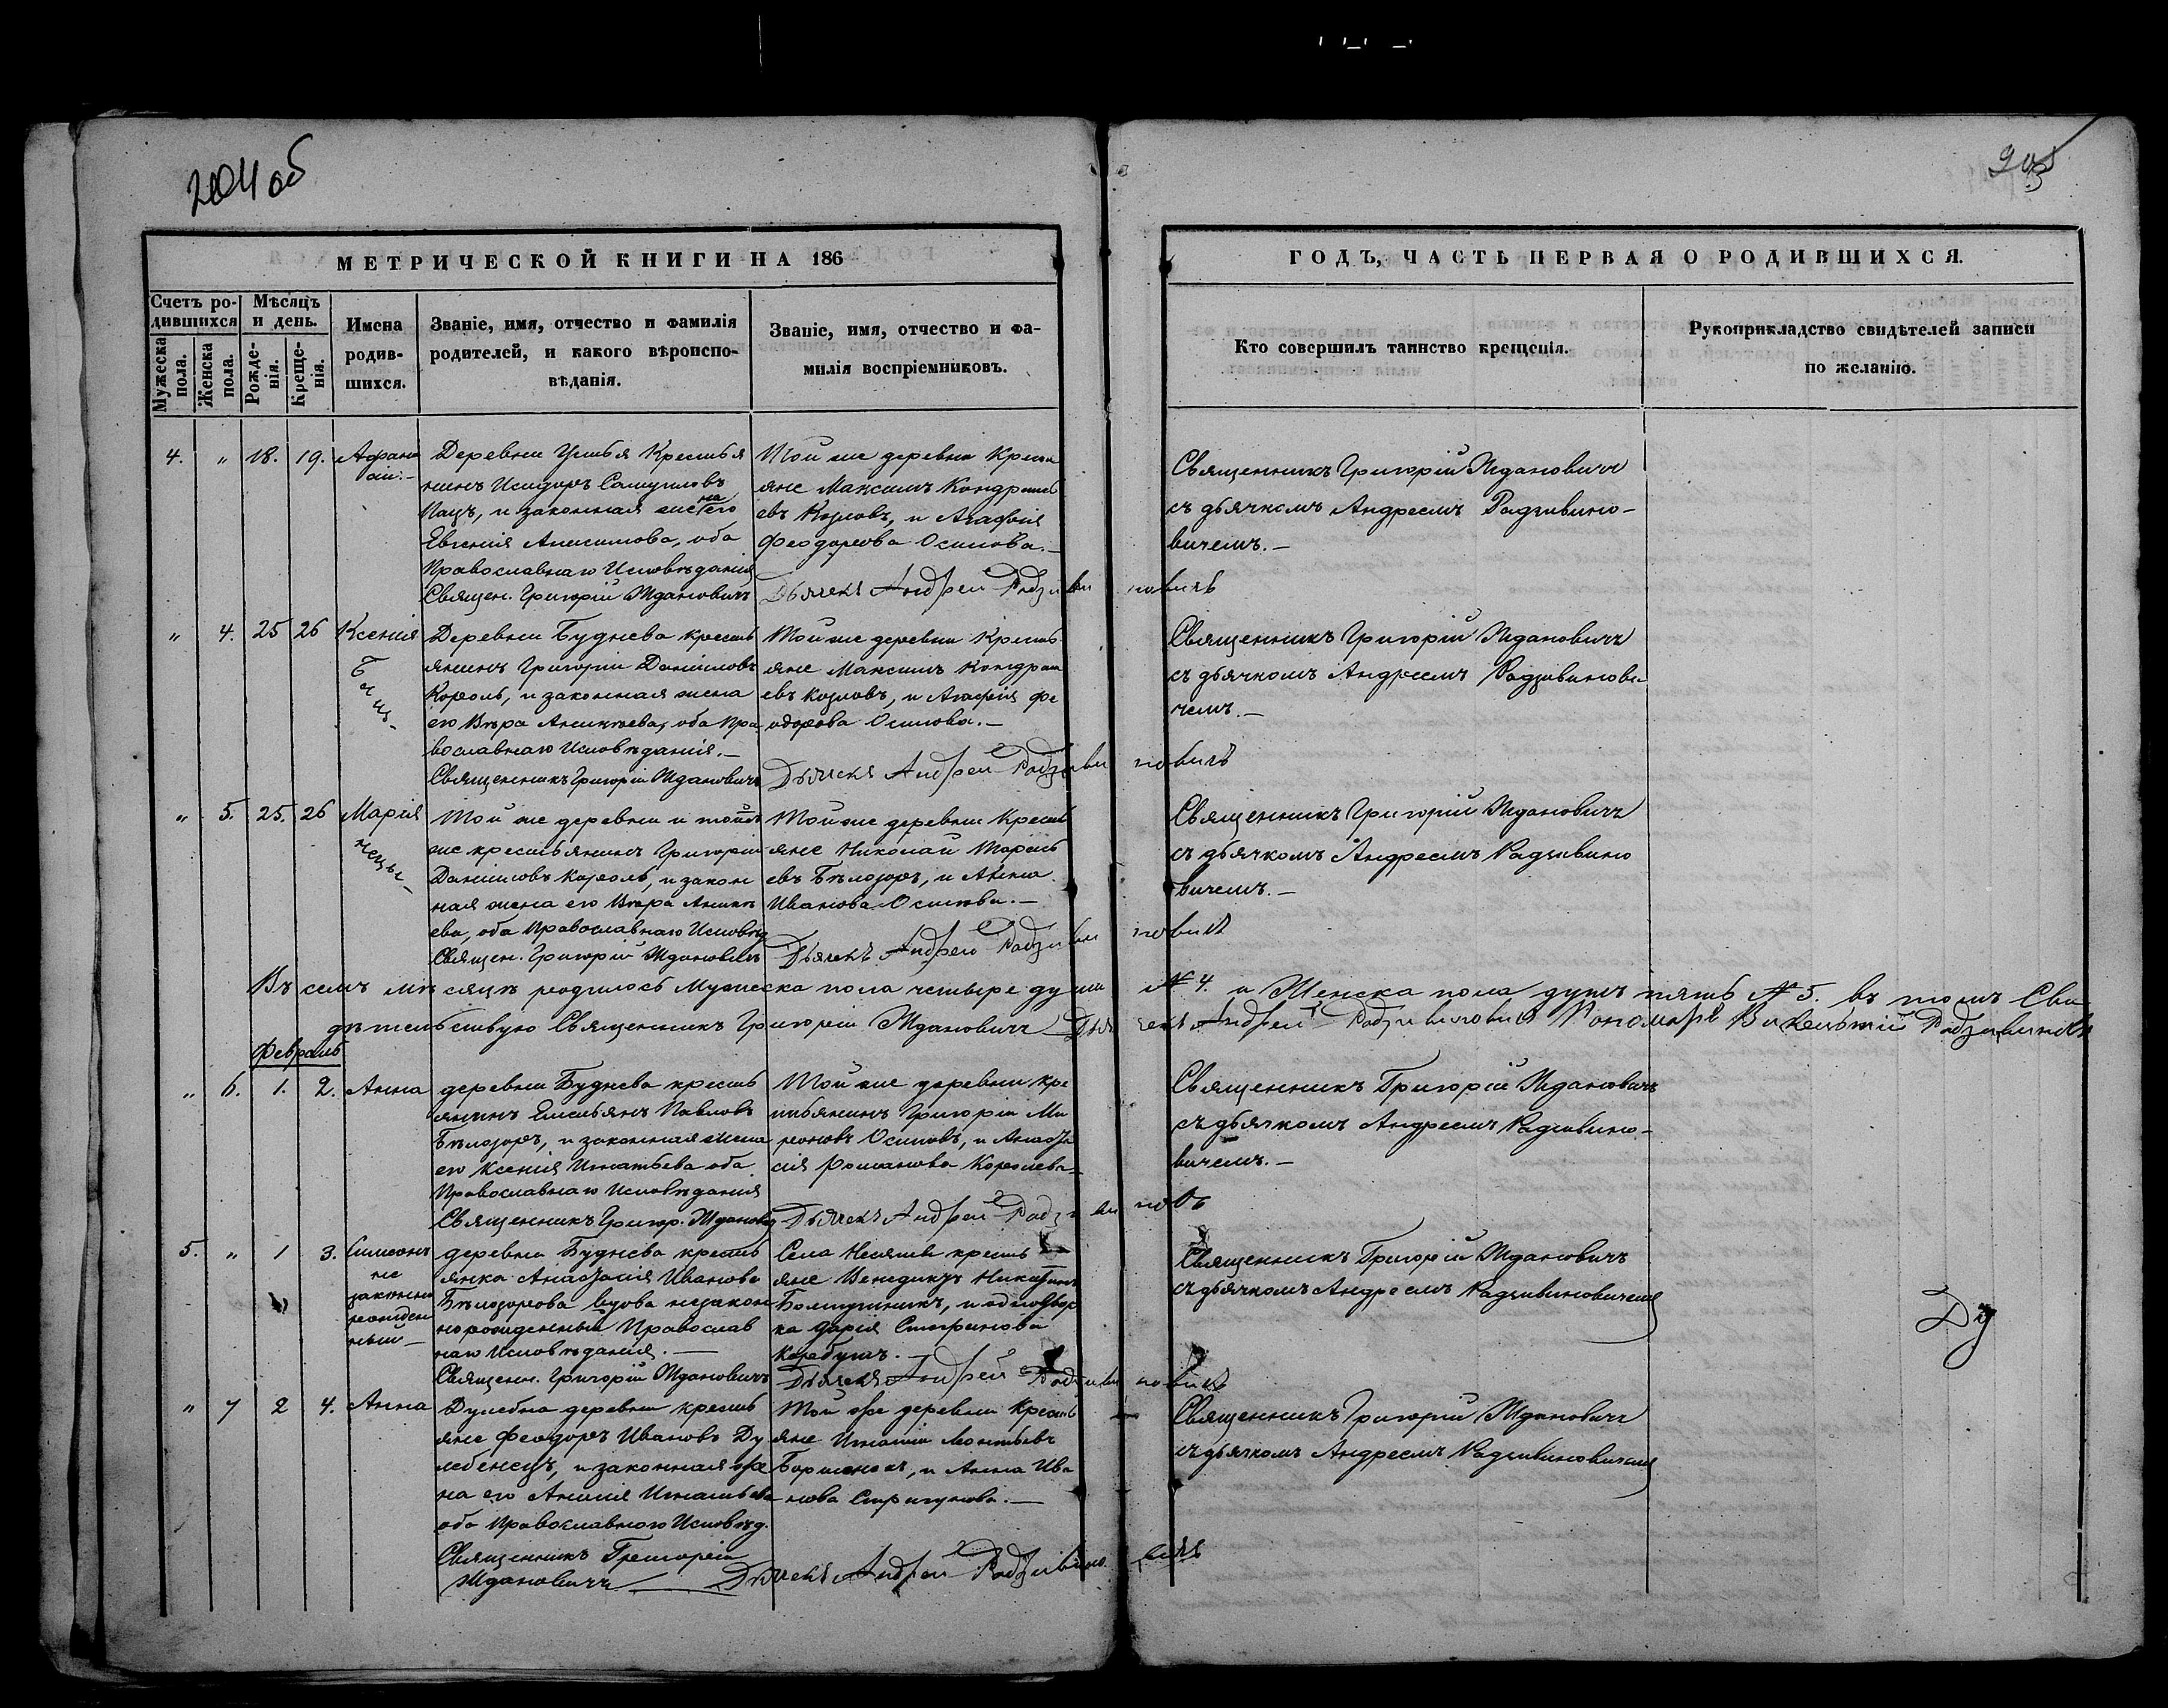 204 об
205
МЕТРИЧЕСКОЙ КНИГИ НА 186
ГОДЪ, ЧАСТЬ ПЕРВАЯ О РОДИВШИХСЯ.
Счетъ ро-
дившихся
Мужеска пола.
Женска пола.
Мѣсяцъ
и день.
Рожде-
нія.
Креще-
нія.
Имена
родив-
шихся.
Званіе, имя, отчество и фамилія
родителей, и какого вѣроиспо-
вѣданія.
Званіе, имя, отчество и фа-
милія воспріемниковъ.
Кто совершилъ таинство крещенія.
Рукоприкладство свидѣтелей записи
по желанію.
4. " 18. 19.
Деревни Крестья
нинъ Исидоръ
Пацъ, и законная жена его
Евгенія оба
Православнаго Исповѣданія
Священ. Григорій Ждановичъ
Той же деревни Кресть
яне Максимъ Кондрать
евъ Козловъ, и Агафія
Феодорова Осипова.—
Дьячекъ Андрей Радзивиновичъ
Священникъ Григорій Ждановичъ
съ дьячкомъ Андреемъ Радзивино-
вичемъ.—
" 4. 25 26 Ксенія
Близ-
Деревни Буднева кресть
янинъ Григорій Даниловъ
Король, и законная жена
его Вѣра оба Пра
вославнаго Исповѣданія.—
Священникъ Григорій Ждановичъ
Той же деревни Кресть
яне Максимъ Кондрать
евъ Козловъ, и Агафія Фе
одорова Осипова.—
Дьячекъ Андрей Радзивиновичъ
Священникъ Григорій Ждановичъ
съ дьячкомъ Андреемъ Радзивинови
чемъ.—
" 5. 25. 26 Марія
нецы—
Той же деревни и
же крестьянинъ Григорій
Даниловъ Король, и закон
ная жена его Вѣра
ева, оба Православнаго Исповѣд
Священ. Григорій Ждановичъ
Той же деревни Кресть
яне Николай
евъ Бѣлозоръ, и Анна
Иванова Осипова.—
Дьячекъ Андрей Радзивиновичъ
Священникъ Григорій Ждановичъ
съ дьячкомъ Андреемъ Радзивино
вичемъ.—
Въ семъ мѣсяцѣ родилось Мужеска пола четыре души № 4. и Женска пола душъ пять № 5. въ томъ Сви
дѣтельствую Священникъ Григорій Ждановичъ Дьячекъ Андрей Радзивиновичъ Пономарь Викентій
Февраль
" 6. 1. 2. Анна
деревни Буднева кресть
янинъ Емельянъ Павловъ
Бѣлозоръ, и законная жена
его Ксенія Игнатьева оба
Православнаго Исповѣданія
Священникъ Григор.
Той же деревни кре
стьянинъ Григорій Ми
роновъ Осиповъ, и Анаста
сія Романова Королева—
Дьячекъ Андрей
Священникъ Григорій Ждановичъ
съ дьячкомъ Андреемъ Радзивино-
вичемъ.—
5. " 1 3. Симеонъ
не
законно
рожден
ный—
деревни Буднева кресть
янка Анастасія Иванова
Бѣлозорова вдова незакон
норожденный Православ
наго Исповѣданія.—
Священн. Григорій Ждановичъ
Села кресть
яне Венедиктъ
и однодвор
ка Дарія Стефанова
Дьячекъ Андрей Радзивиновичъ
Священникъ Григорій Ждановичъ
съ дьячкомъ Андреемъ Радзивиновичемъ
" 7 2 4. Анна
Дулебна деревни кресть
яне Феодоръ Ивановъ Ду
лебенецъ, и законная же
на его Игнатьева
оба Православнаго Исповѣд.
Священникъ Григорій
Ждановичъ
Той же деревни Кресть
яне Игнатій Леонтьевъ
и Анна Ива
нова Стригунова.—
Дьячекъ Андрей Радзивиновичъ
Священникъ Григорій Ждановичъ
съ дьячкомъ Андреемъ Радзивиновичемъ